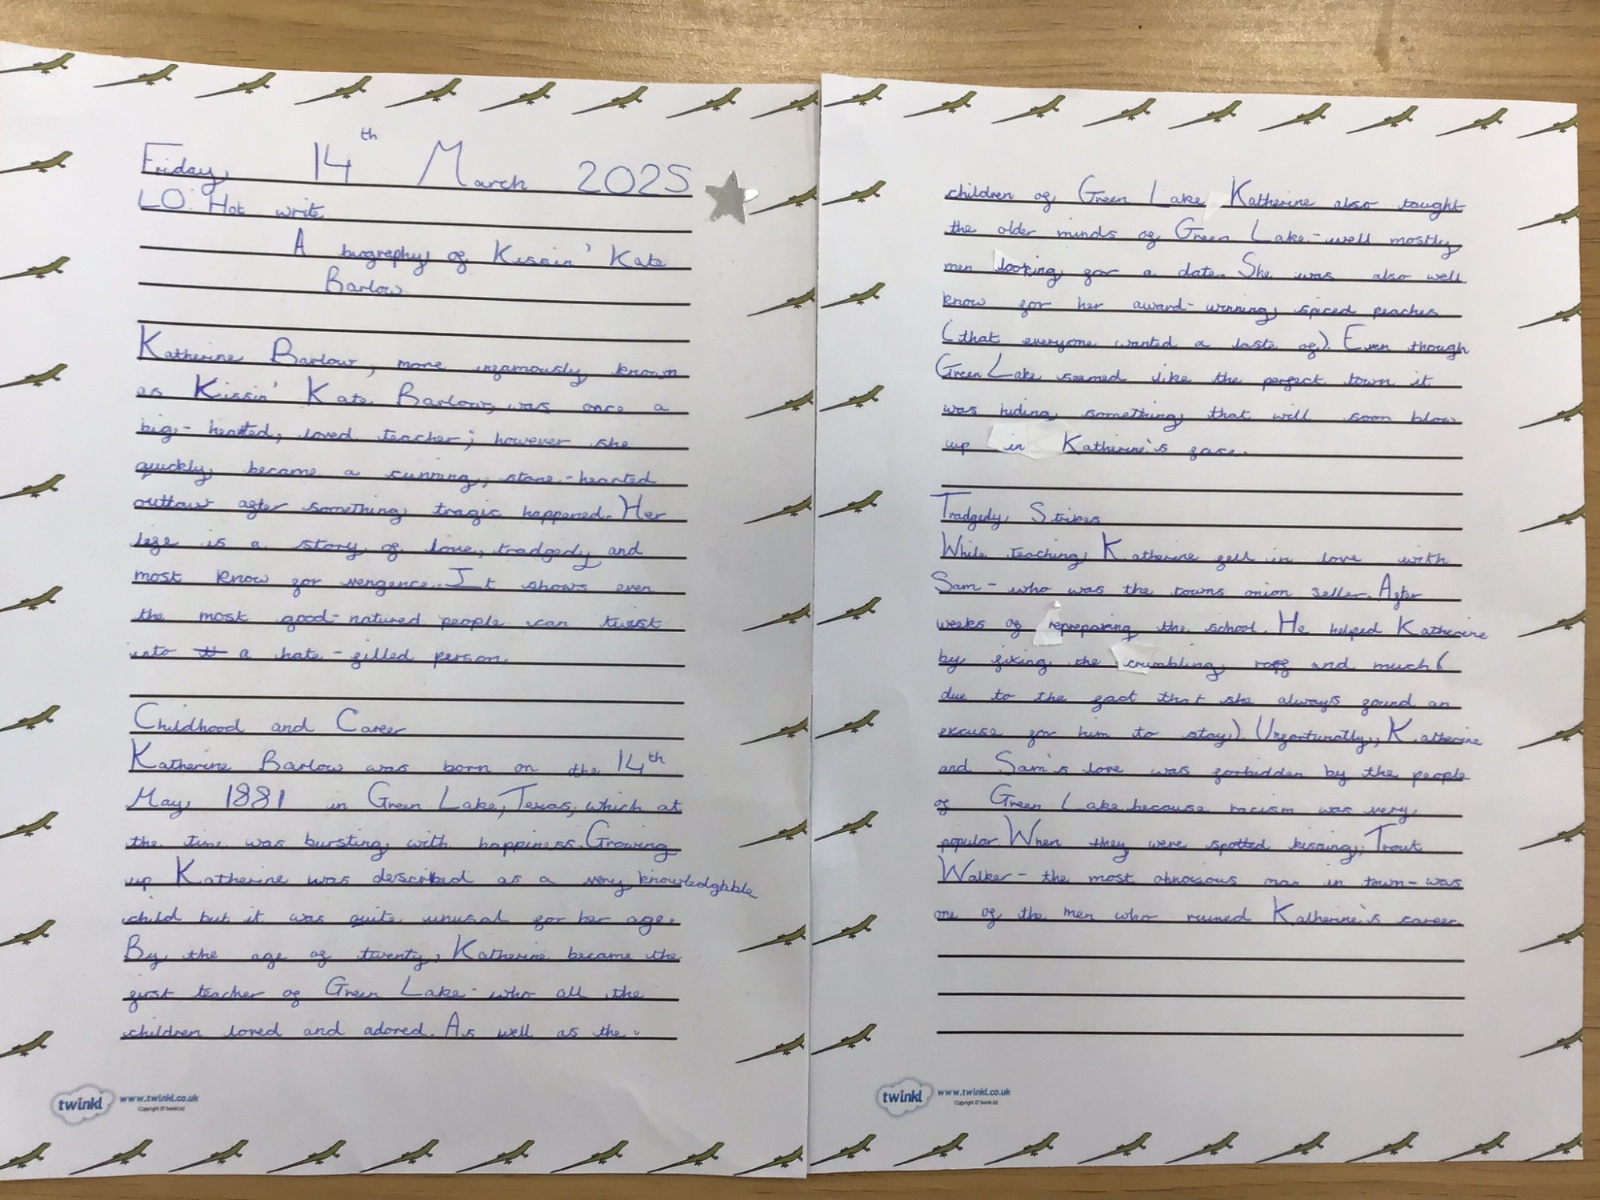 Friday 14th March 2025
LO: Hot write
A biography of Kissin' Kate
Barlow
Katherine Barlow, more infamously known
as Kissin' Kate Barlow, was once a
big-hearted, loved teacher; however she
quickly became a cunning, stone-hearted
outlaw after something tragic happened. Her
life is a story of love, tradgedy and
most know for vengence. It shows even
the most good-natured people can twist
into a hate-filled person.
Childhood and Career
Katherine Barlow was born on the 14th
May 1881 in Green Lake, Texas, which at
the time was bursting with happiness. Growing
up Katherine was described as a very knowledgable
child but it was quite unusual for her age.
By the age of twenty, Katherine became the
first teacher of Green Lake - who all the
children loved and adored. As well as the
twinkl www.twinkl.co.uk
Copyright © Twinkl Ltd
children of Green Lake, Katherine also taught
the older minds of Green Lake - well mostly
men looking for a date. She was also well
know for her award-winning spiced peaches
(that everyone wanted a taste of). Even though
Green Lake seemed like the perfect town it
was hiding something that will soon blow
up in Katherine's face.
Tradgedy Strikes
While teaching Katherine fell in love with
Sam - who was the towns onion seller. After
weeks of repreparing the school. He helped Katherine
by fixing the crumbling roof and much (
due to the fact that she always found an
excuse for him to stay). Unfortunatly, Katherine
and Sam's love was forbidden by the people
of Green Lake because racism was very
popular. When they were spotted kissing, Trout
Walker - the most obnoxious man in town - was
one of the men who ruined Katherine's career
twinkl www.twinkl.co.uk
Copyright © Twinkl Ltd